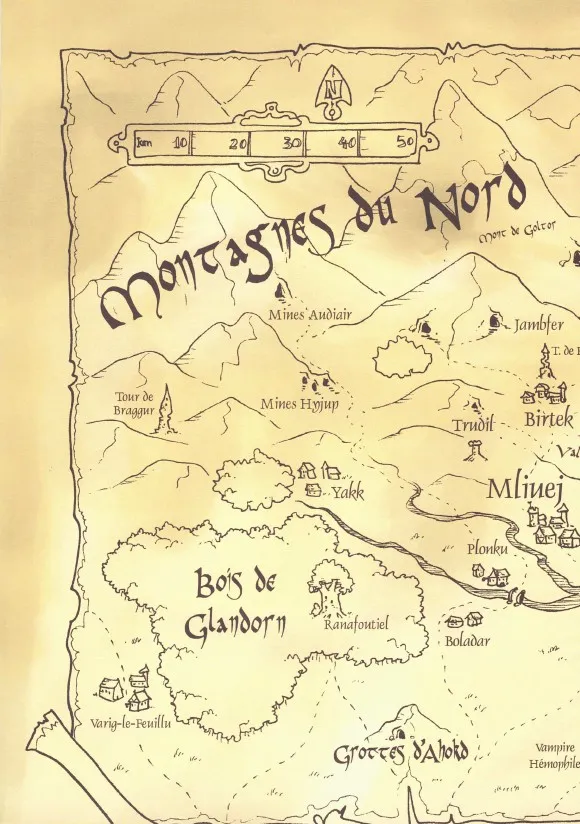 N
km 10 20 30 40 50
Montagnes du Nord
Mont de Goltor
Mines Audiair
Jambfer
T. de
Tour de
Braggur
Mines Hyjup
Trudil
Birtek
Val
Yakk
Mliuej
Plonku
Bois de
Glandorn
Ranafoutiel
Boladar
Varig-le-Feuillu
Grottes d'Ahokd
Vampire
Hémophile